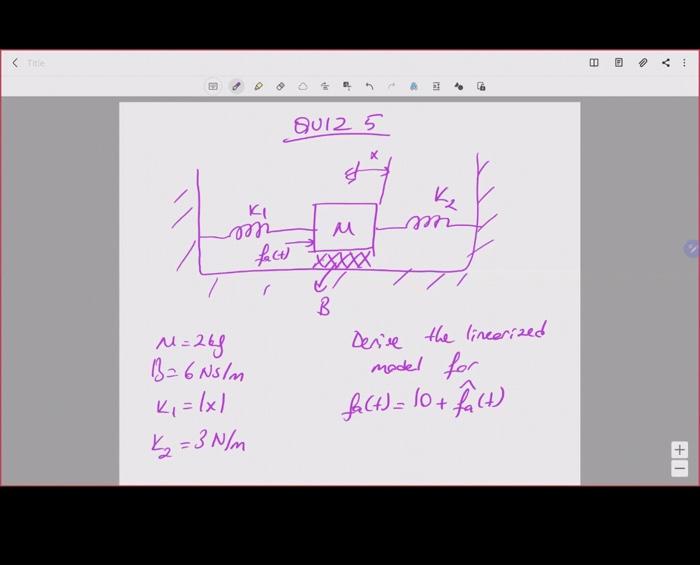 Title
QUIZ 5
x
K1
K2
M
fa(t)
B
M = 2kg
B = 6 Ns/m
K1 = |x|
K2 = 3 N/m
Derive the linearized
model for
fa(t) = 10 + f̂a(t)